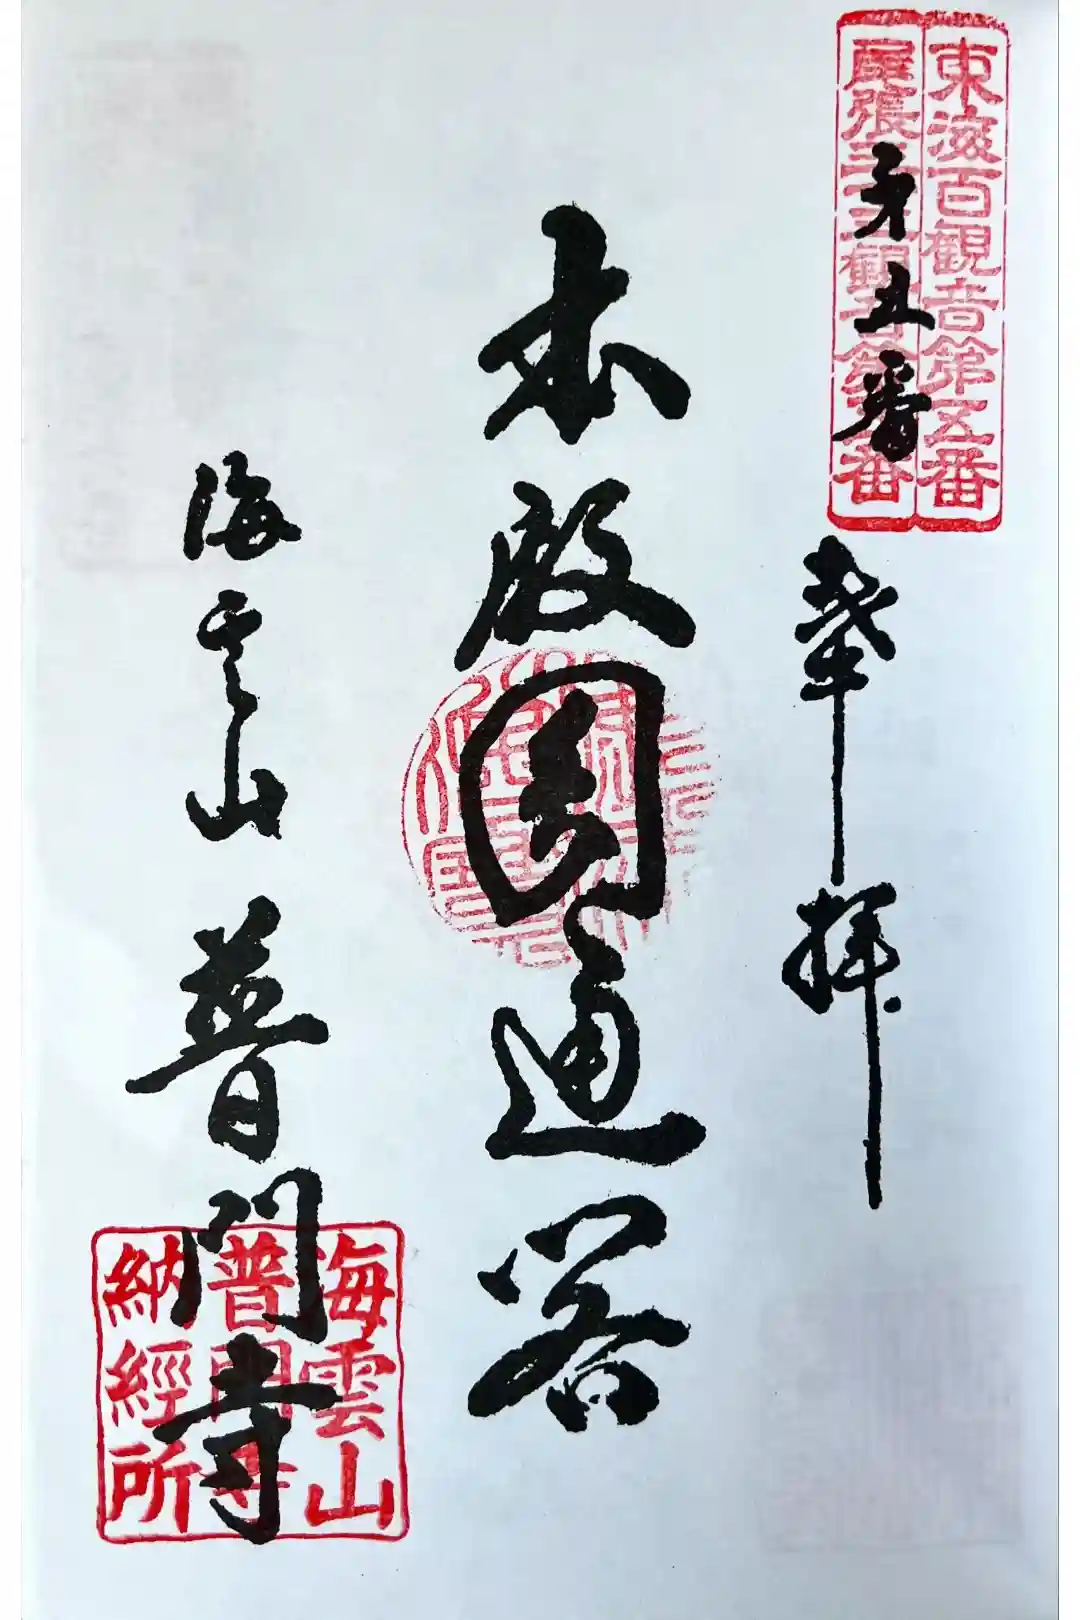 東海百観音第五番
尾張三十三観音第五番
第五番
奉拝
本殿圓通閣
海雲山
普門寺
海雲山
普門寺
納經所